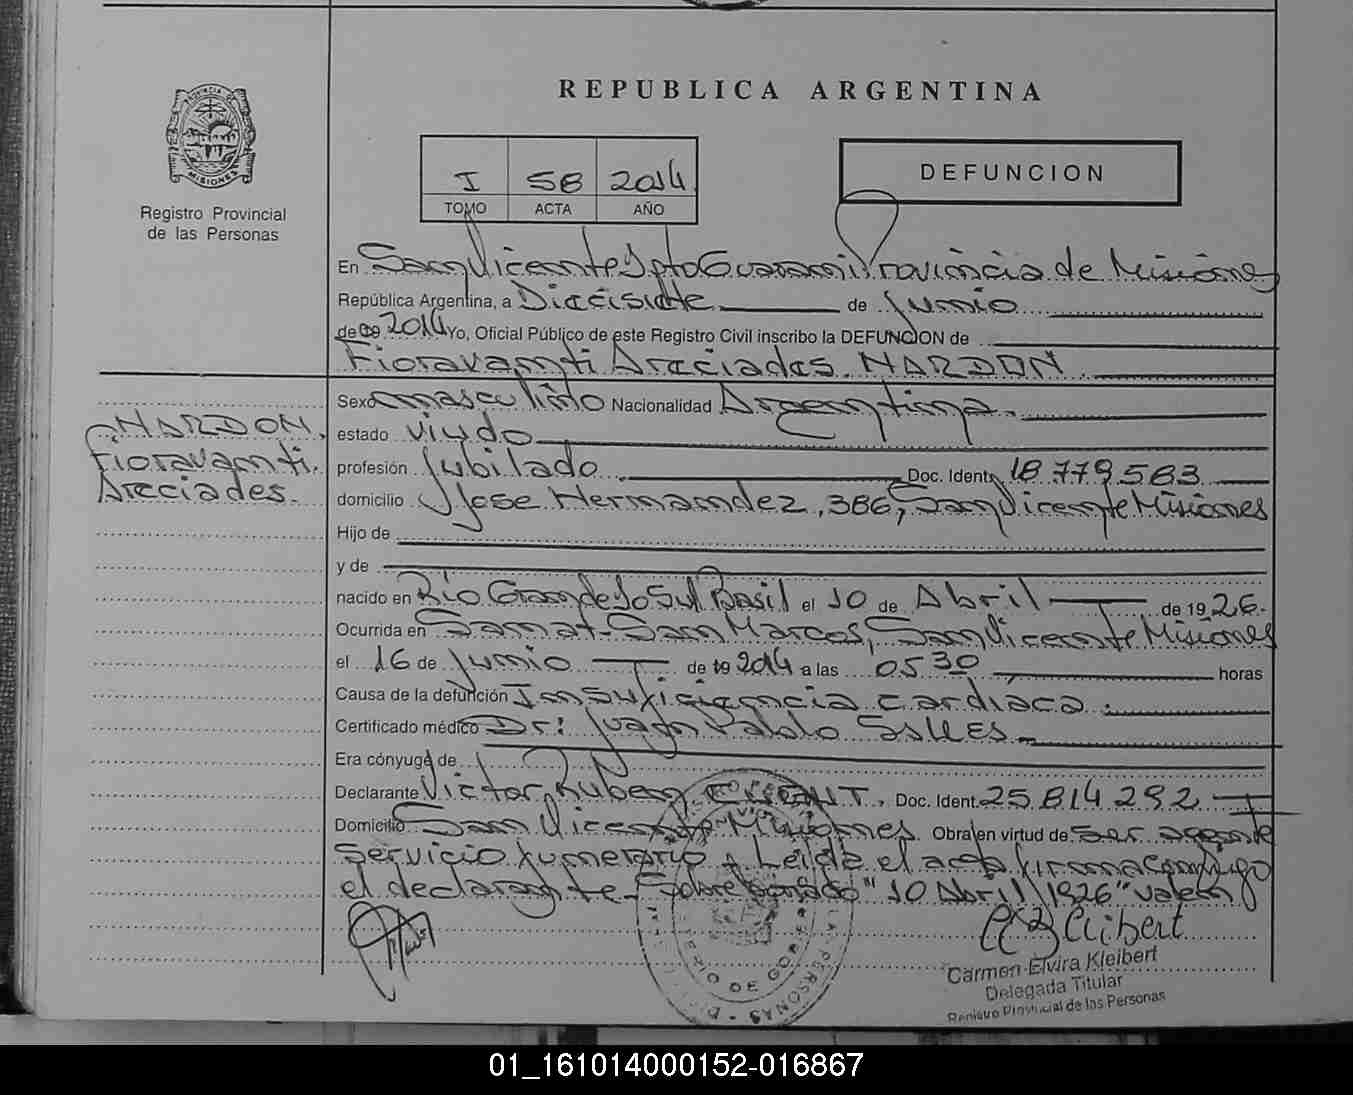 REPUBLICA ARGENTINA
PROVINCIA DE
MISIONES
Registro Provincial
de las Personas
I 58 2014
TOMO ACTA AÑO
DEFUNCION
En San Vicente Dpto Guarani Provincia de Misiones
República Argentina, a Diecisiete de Junio
de 19 2014 Yo, Oficial Público de este Registro Civil inscribo la DEFUNCION de
Fioravanti Areciades NARDON
NARDON,
Fioravanti.
Areciades.
Sexo masculino Nacionalidad Argentina.
estado viudo
profesión Jubilado Doc. Ident. 18.779.583
domicilio Jose Hernandez, 386, San Vicente Misiones
Hijo de
y de
nacido en Rio Grande do Sul Basil el 10 de Abril de 19 26.
Ocurrida en Samat-San Marcos, San Vicente Misiones
el 16 de Junio de 19 2014 a las 0530 horas
Causa de la defunción Insuficiencia cardiaca.
Certificado médico Dr: Juan Pablo SallES
Era cónyuge de
Declarante Victor Ruben Doc. Ident. 25.814.292
Domicilio San Vicente Misiones Obra en virtud de ser agente
servicio funerario - Leida el acta firma conmigo
el declarante - Sobre "10 Abril/1926" Valen
Carmen Elvira Kleibert
Delegada Titular
Registro Provincial de las Personas
01_161014000152-016867